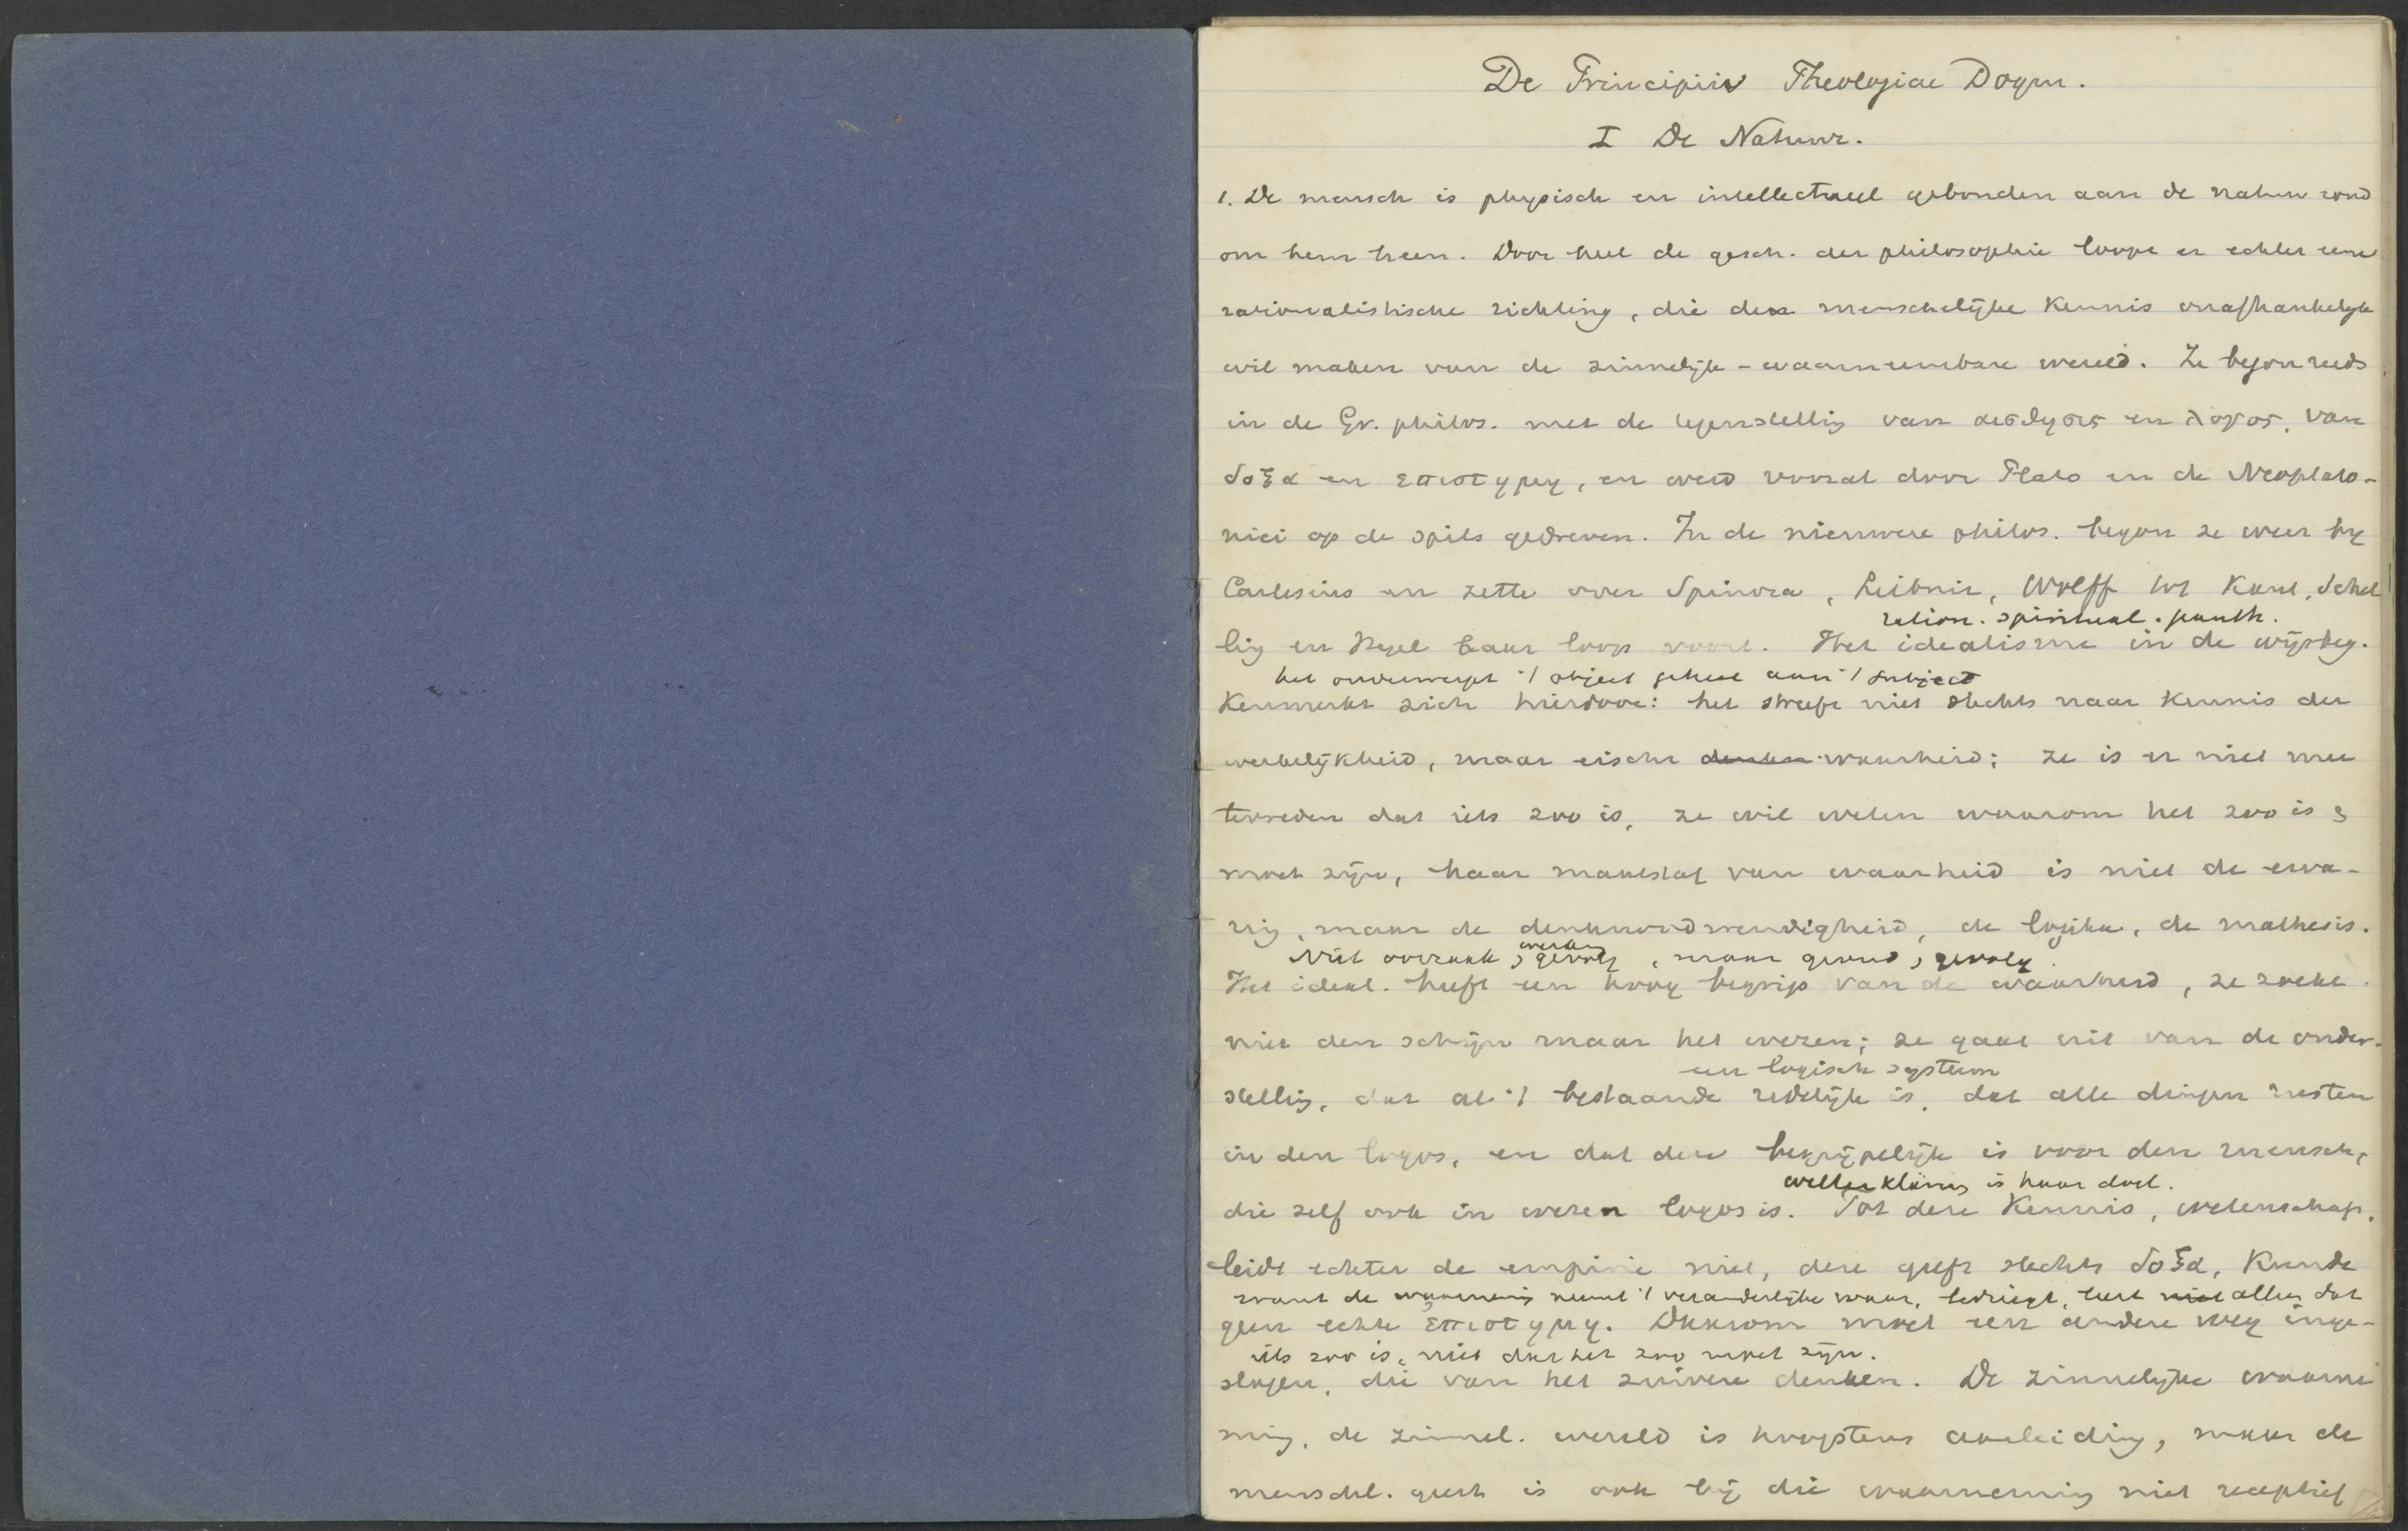 De Principiis Theologiae Dogm.
I De Natuur.
1. De mensch is physisch en intellectueel gebonden aan de natuur rond
om hem heen. Door heel de gesch. der philosophie loopt er echter eene
rationalistische richting, die de menschelijke kennis onafhankelijk
wil maken van de zinnelijk-waarneembare wereld. Ze begon reeds
in de Gr. philos. met de tegenstelling van αισθησις en λογος, van
δοξα en επιστημη, en werd vooral door Plato en de Neoplato-
nici op de spits gedreven. In de nieuwere philos. begon ze weer bij
Cartesius en zette over Spinoza, Leibniz, Wolff tot Kant, Schel
ration. spiritual. panth.
ling en Hegel haar loop voort. Het idealisme in de wijsbeg.
het onderwerpt 't object geheel aan 't subject
kenmerkt zich hierdoor: het streeft niet slechts naar kennis der
werkelijkheid, maar eischt denken waarheid; ze is er niet mee
tevreden dat iets zoo is, ze wil weten waarom het zoo is &
moet zijn, haar maatstaf van waarheid is niet de erva-
ring, maar de denknoodwendigheid, de logika, de mathesis.
werking
Niet oorzaak & gevolg, maar grond & gevolg.
Het ideal. heeft een hoog begrip van de waarheid, ze zoekt
niet den schijn maar het wezen; ze gaat uit van de onder-
een logisch systeem
stelling, dat al 't bestaande redelijk is, dat alle dingen rusten
in den logos, en dat deze begrijpelijk is voor den mensch,
is haar doel.
die zelf ook in wezen logos is. Tot deze kennis, wetenschap,
leidt echter de empirie niet, deze geeft slechts δοξα, kunde
want de waarneming neemt 't veranderlijke waar, bedriegt, leert niet alleen dat
geen echte επιστημη. Daarom moet een andere weg inge-
iets zoo is, niet dat het zoo moet zijn.
slagen, die van het zuivere denken. De zinnelijke waarne
ming, de zinnel. wereld is hoogstens aanleiding, maar de
menschl. geest is ook bij die waarneming niet receptief